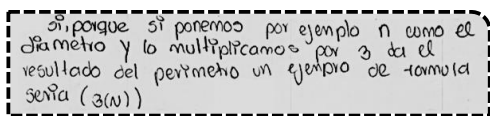 si, porque si ponemos por ejemplo n como el
diametro y lo multiplicamos por 3 da el
resultado del perimetro un ejempro de formula
seria (3(N))